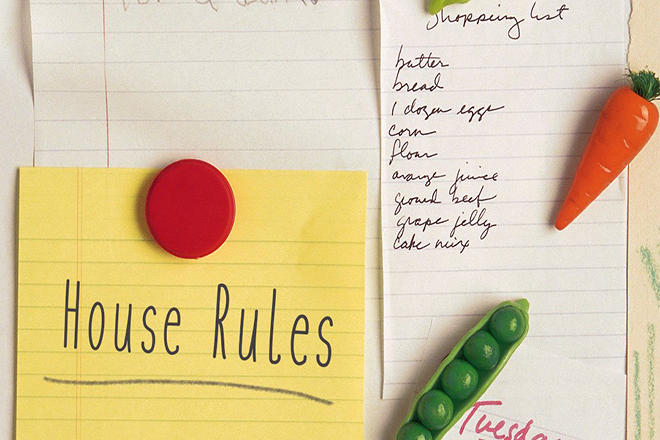 Shopping List
butter
bread
1 dozen eggs
corn
flour
orange juice
ground beef
grape jelly
cake mix
House Rules